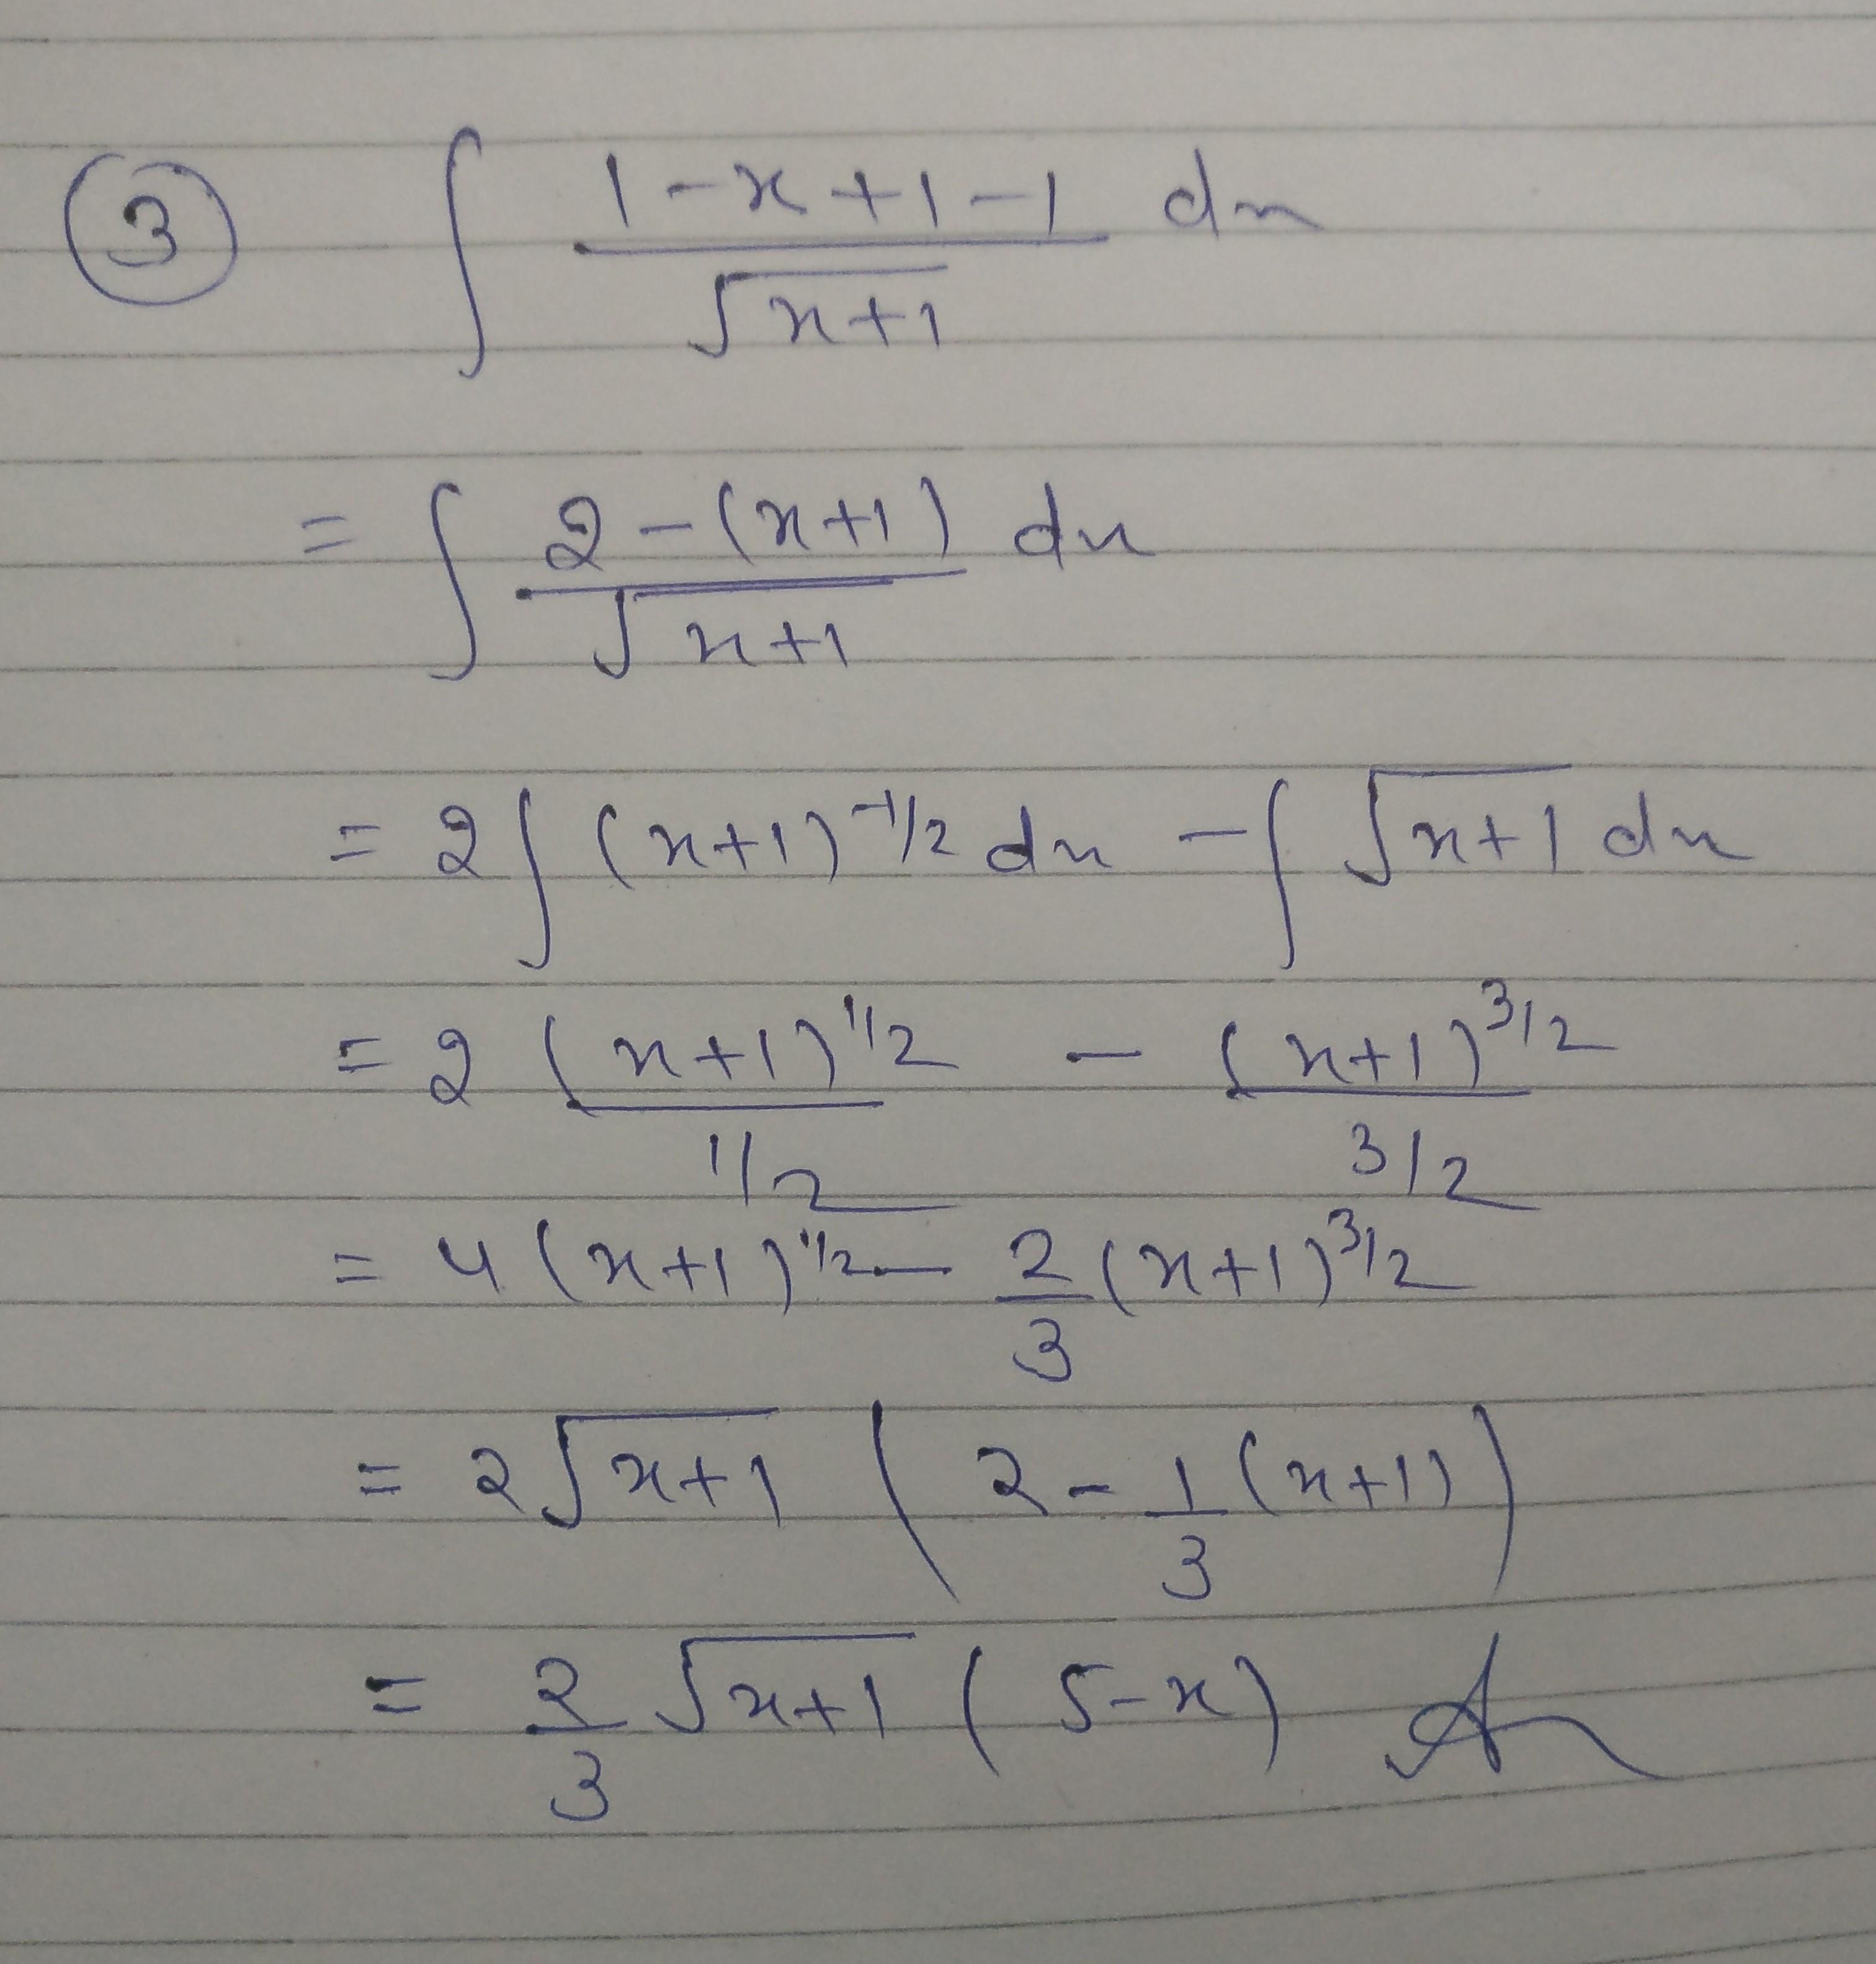 ③ ∫ (1-x+1-1)/√(x+1) dx
= ∫ (2-(x+1))/√(x+1) dx
= 2∫(x+1)^(-1/2) dx - ∫√(x+1) dx
= 2 (x+1)^(1/2)/(1/2) - (x+1)^(3/2)/(3/2)
= 4(x+1)^(1/2) - 2/3 (x+1)^(3/2)
= 2√(x+1) (2 - 1/3 (x+1))
= 2/3 √(x+1) (5-x)